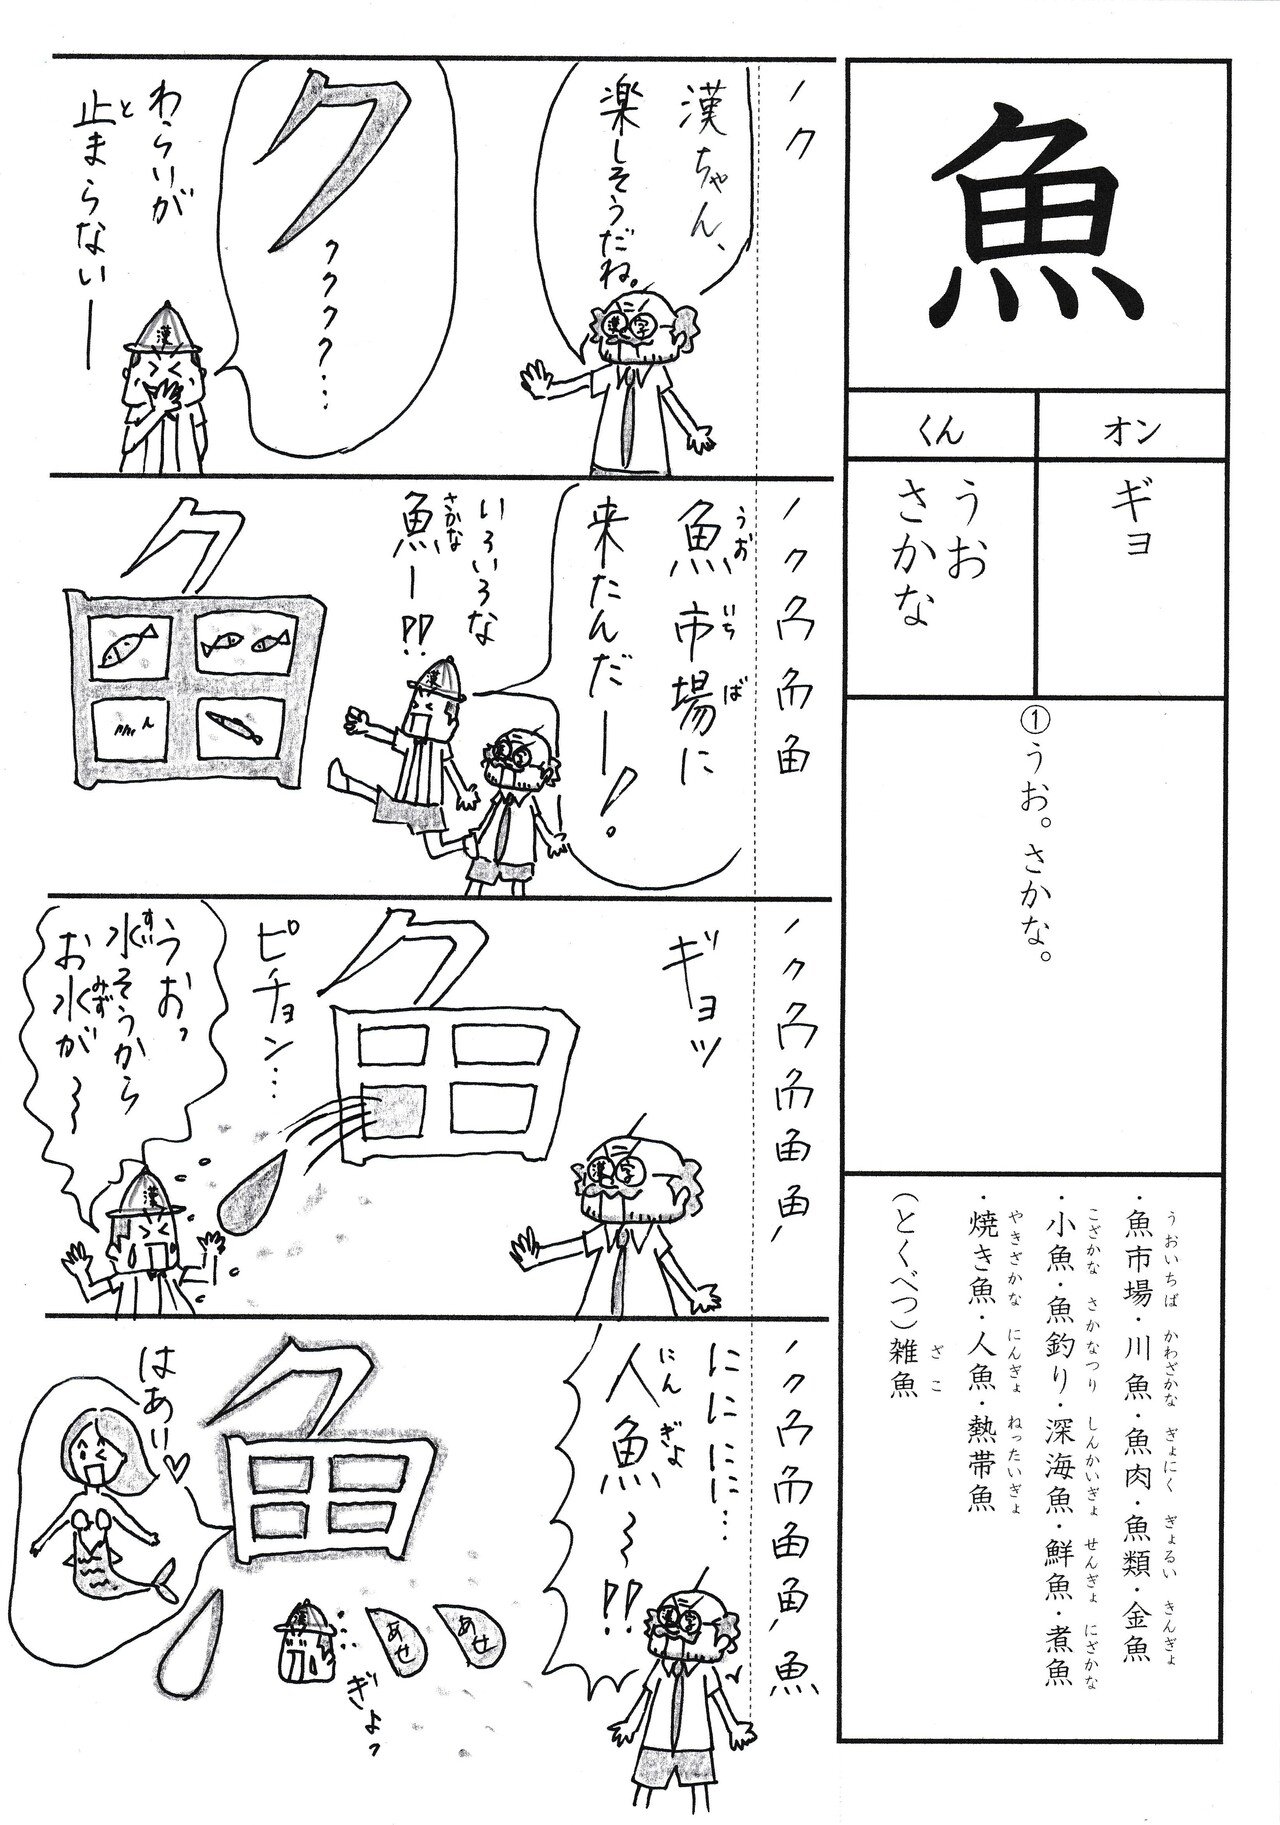 魚
オン
ギョ
くん
うお
さかな
①うお。さかな。
・魚市場・川魚・魚肉・魚類・金魚
うおいちば かわざかな ぎょにく ぎょるい きんぎょ
・小魚・魚釣り・深海魚・鮮魚・煮魚
こざかな さかなつり しんかいぎょ せんぎょ にざかな
・焼き魚・人魚・熱帯魚
やきざかな にんぎょ ねったいぎょ
(とくべつ)雑魚
ざこ
ノク
漢ちゃん、
楽しそうだね。
漢字
ク
ククククク…
わらいが
止まらないー
と
漢
魚市場に
うおいちば
来たんだー!
いろいろな
魚ー!!
さかな
ク
漢
漢字
ギョッ
ピチョン…
うおっ
水そうから
すい
お水が~
みず
漢字
漢
ににに…
人魚~!!
にんぎょ
漢字
はあい♡
あせ
あせ
ぎょっ
漢